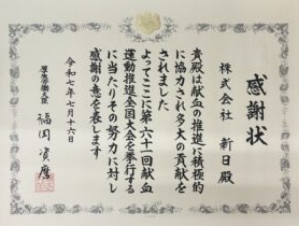 感謝状
株式会社 新日殿
貴殿は献血の推進に積極的
に協力され多大の貢献を
されました
よってここに第六十一回献血
運動推進全国大会を挙行する
に当たりその努力に対し
感謝の意を表します
令和七年七月十六日
厚生労働大臣
福岡資麿